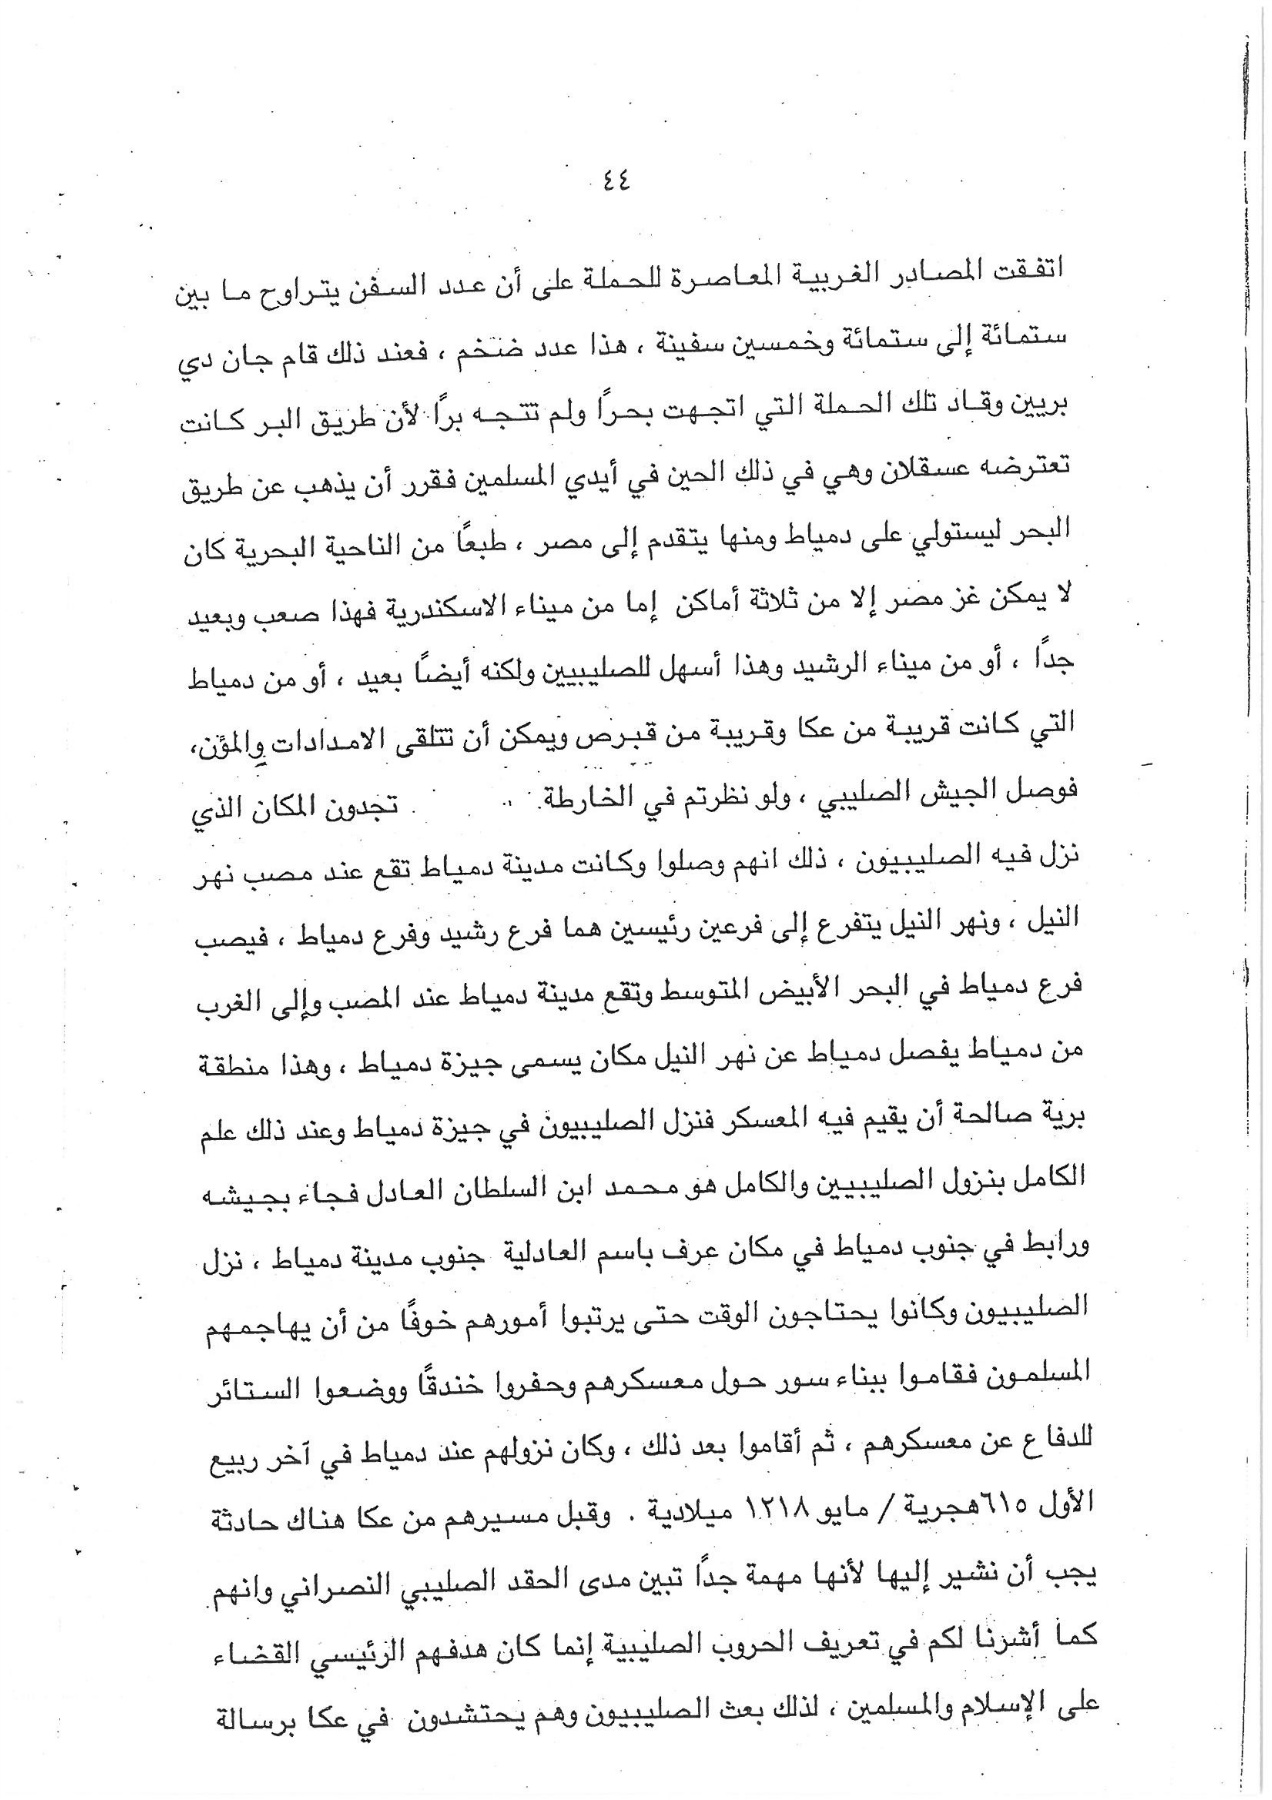 ٤٤
اتفقت المصادر الغربية المعاصرة للحملة على أن عدد السفن يتراوح ما بين
ستمائة إلى ستمائة وخمسين سفينة ، هذا عدد ضخم ، فعند ذلك قام جان دي
بريين وقاد تلك الحملة التي اتجهت بحرًا ولم تتجه برًا لأن طريق البر كانت
تعترضه عسقلان وهي في ذلك الحين في أيدي المسلمين فقرر أن يذهب عن طريق
البحر ليستولي على دمياط ومنها يتقدم إلى مصر ، طبعًا من الناحية البحرية كان
لا يمكن غز مصر إلا من ثلاثة أماكن إما من ميناء الاسكندرية فهذا صعب وبعيد
جدًا ، أو من ميناء الرشيد وهذا أسهل للصليبيين ولكنه أيضًا بعيد ، أو من دمياط
التي كانت قريبة من عكا وقريبة من قبرص ويمكن أن تتلقى الامدادات والمؤن،
فوصل الجيش الصليبي ، ولو نظرتم في الخارطة تجدون المكان الذي
نزل فيه الصليبيون ، ذلك انهم وصلوا وكانت مدينة دمياط تقع عند مصب نهر
النيل ، ونهر النيل يتفرع إلى فرعين رئيسين هما فرع رشيد وفرع دمياط ، فيصب
فرع دمياط في البحر الأبيض المتوسط وتقع مدينة دمياط عند المصب وإلى الغرب
من دمياط يفصل دمياط عن نهر النيل مكان يسمى جيزة دمياط ، وهذا منطقة
برية صالحة أن يقيم فيه المعسكر فنزل الصليبيون في جيزة دمياط وعند ذلك علم
الكامل بنزول الصليبيين والكامل هو محمد ابن السلطان العادل فجاء بجيشه
ورابط في جنوب دمياط في مكان عرف باسم العادلية جنوب مدينة دمياط ، نزل
الصليبيون وكانوا يحتاجون الوقت حتى يرتبوا أمورهم خوفًا من أن يهاجمهم
المسلمون فقاموا ببناء سور حول معسكرهم وحفروا خندقًا ووضعوا الستائر
للدفاع عن معسكرهم ، ثم أقاموا بعد ذلك ، وكان نزولهم عند دمياط في آخر ربيع
الأول ٦١٥هجرية / مايو ١٢١٨ ميلادية . وقبل مسيرهم من عكا هناك حادثة
يجب أن نشير إليها لأنها مهمة جدًا تبين مدى الحقد الصليبي النصراني وانهم
كما أشرنا لكم في تعريف الحروب الصليبية إنما كان هدفهم الرئيسي القضاء
على الإسلام والمسلمين ، لذلك بعث الصليبيون وهم يحتشدون في عكا برسالة